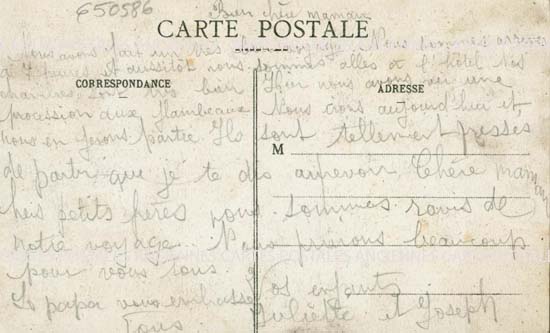 650586
Bien chère maman
CARTE POSTALE
Nous avons fait un très voyage. Nous sommes arrivés
à 7 heures et aussitôt nous sommes allés à l'hôtel Nos
chambres sont très bien Hier nous avons vu une
CORRESPONDANCE
ADRESSE
procession aux flambeaux Nous irons aujourd'hui et
nous en ferons partie. Ils sont tellement pressés
M
de partir que je te dis aurevoir Chère maman
chers petits frères nous sommes ravis de
notre voyage. Nous prierons beaucoup
pour vous tous. Vos enfants
Le papa vous embrasse Juliette et Joseph
Tous